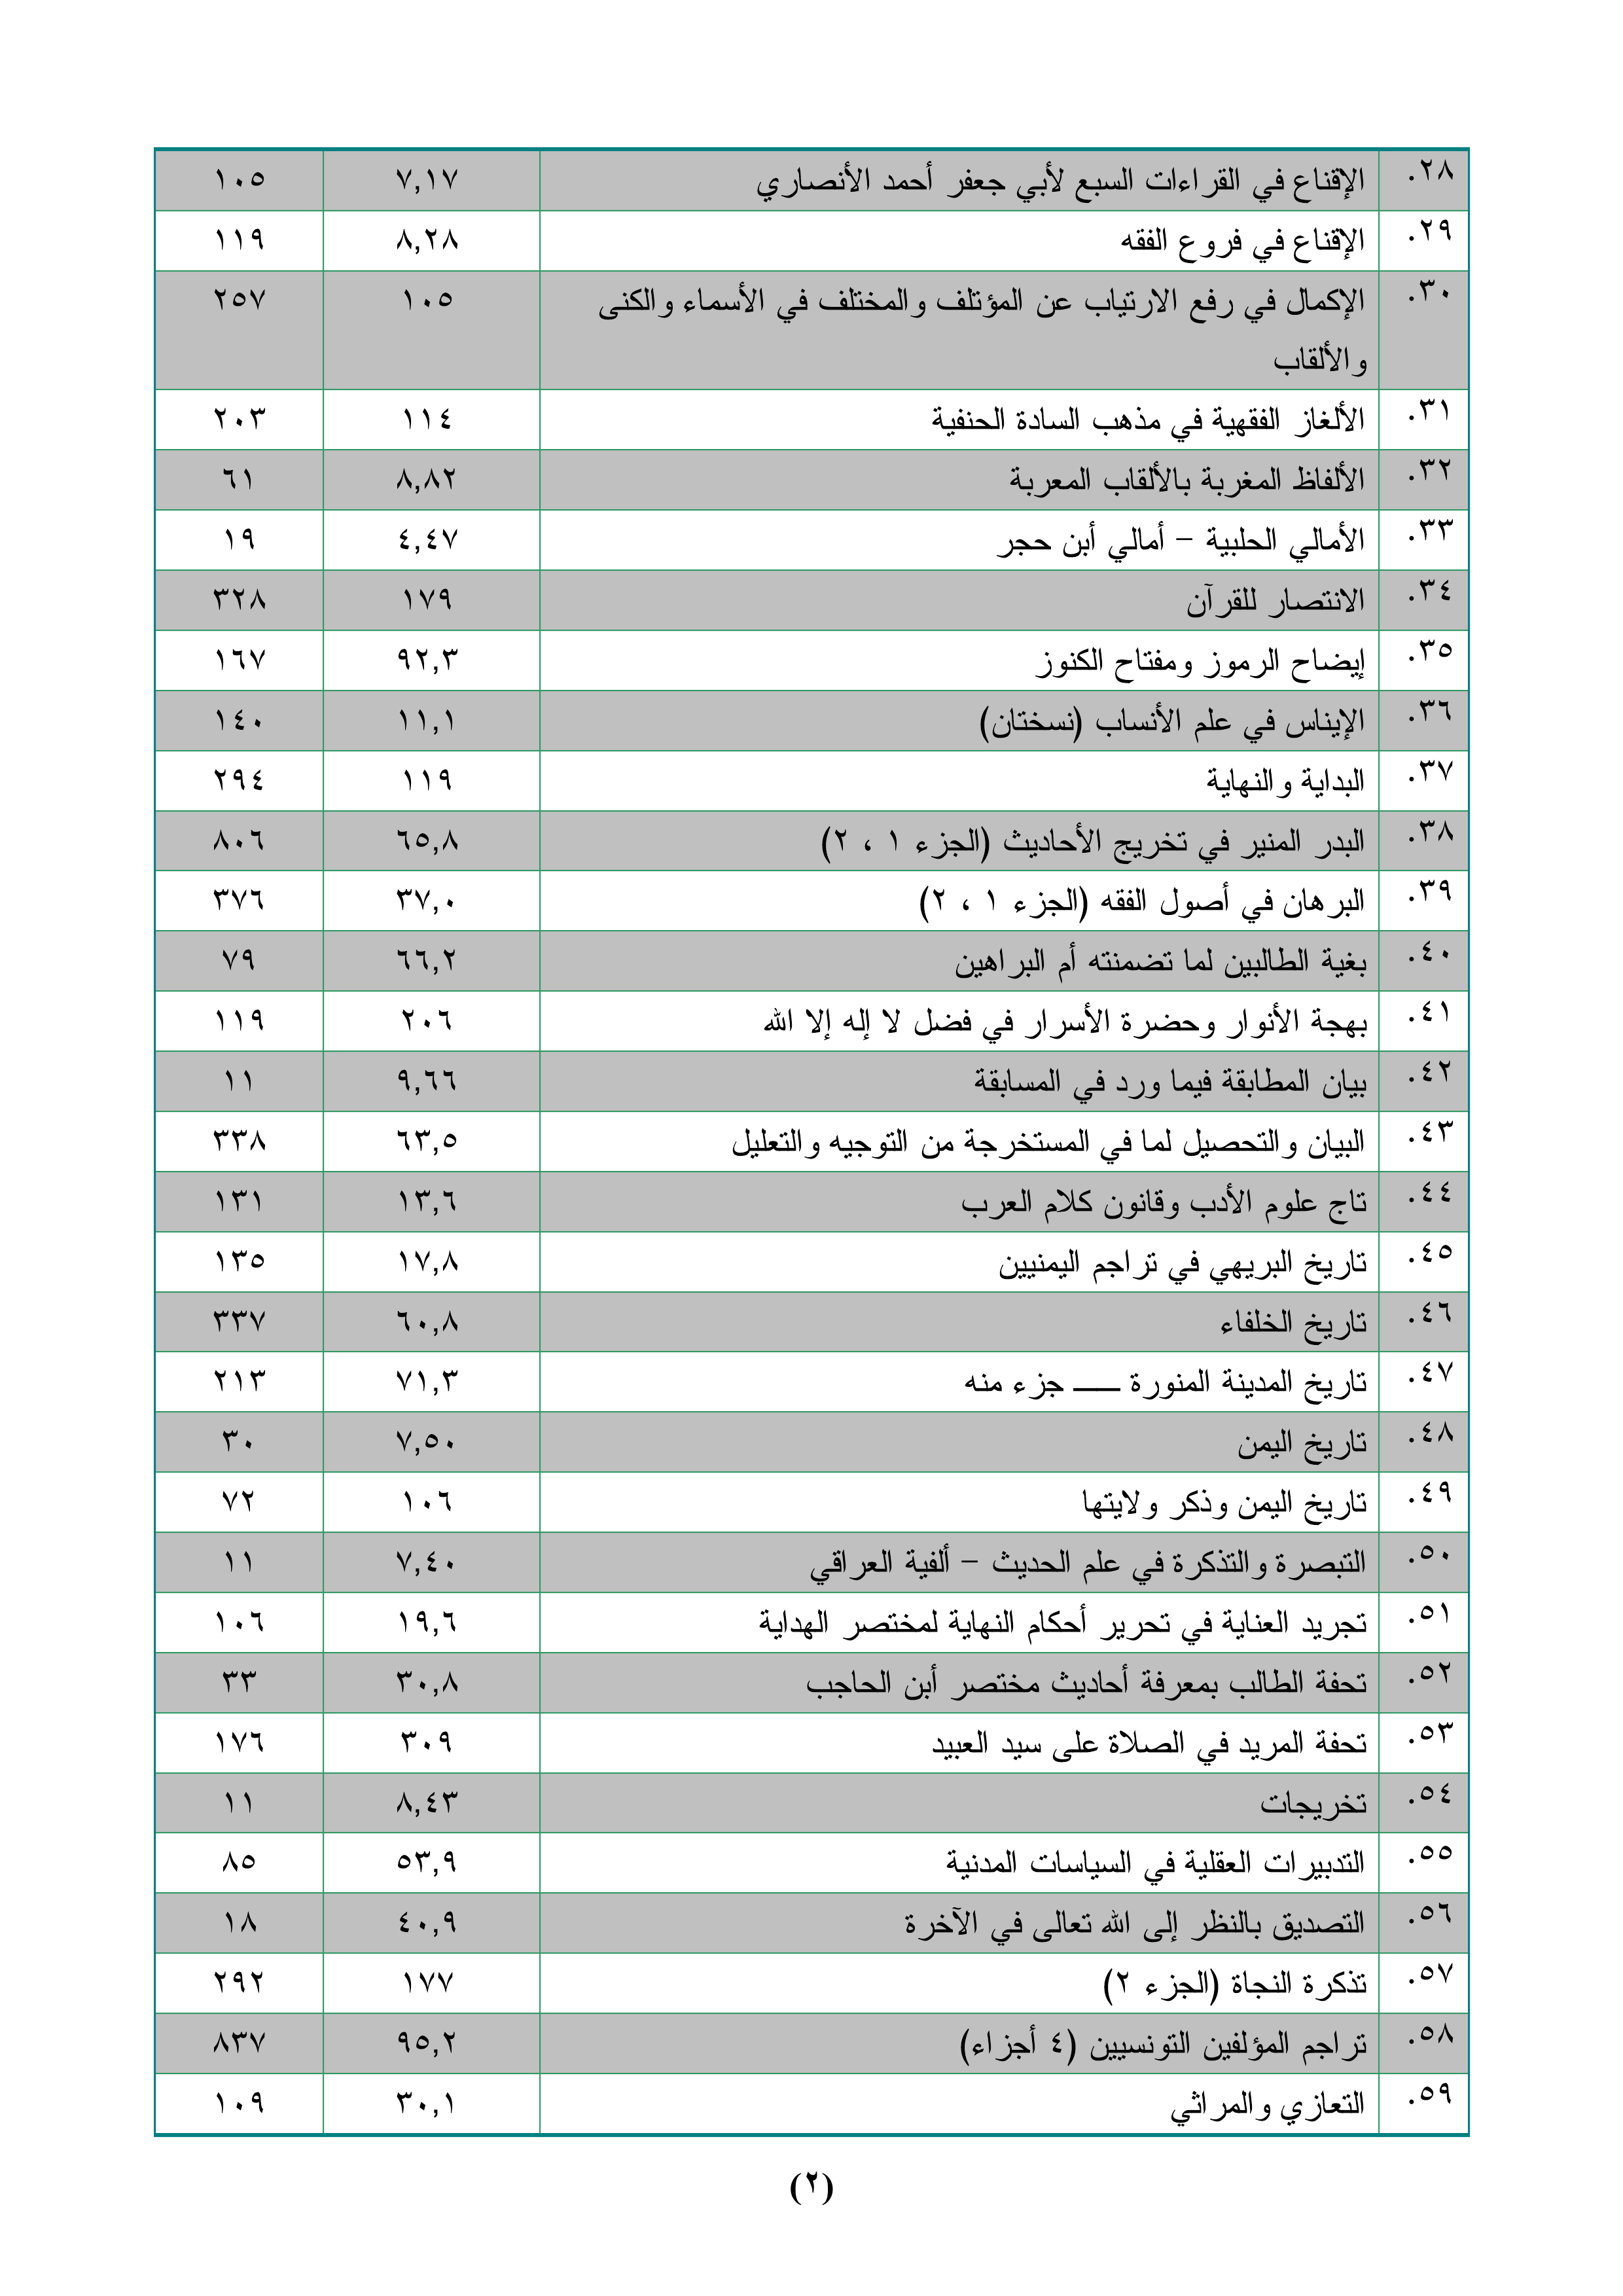 ٢٨. الإقناع في القراءات السبع لأبي جعفر أحمد الأنصاري ٧,١٧ ١٠٥
٢٩. الإقناع في فروع الفقه ٨,٢٨ ١١٩
٣٠. الإكمال في رفع الارتياب عن المؤتلف والمختلف في الأسماء والكنى ١٠٥ ٢٥٧
والألقاب
٣١. الألغاز الفقهية في مذهب السادة الحنفية ١١٤ ٢٠٣
٣٢. الألفاظ المغربة بالألقاب المعربة ٨,٨٢ ٦١
٣٣. الأمالي الحلبية – أمالي أبن حجر ٤,٤٧ ١٩
٣٤. الانتصار للقرآن ١٧٩ ٣٢٨
٣٥. إيضاح الرموز ومفتاح الكنوز ٩٢,٣ ١٦٧
٣٦. الإيناس في علم الأنساب (نسختان) ١١,١ ١٤٠
٣٧. البداية والنهاية ١١٩ ٢٩٤
٣٨. البدر المنير في تخريج الأحاديث (الجزء ١ ، ٢) ٦٥,٨ ٨٠٦
٣٩. البرهان في أصول الفقه (الجزء ١ ، ٢) ٣٧,٠ ٣٧٦
٤٠. بغية الطالبين لما تضمنته أم البراهين ٦٦,٢ ٧٩
٤١. بهجة الأنوار وحضرة الأسرار في فضل لا إله إلا الله ٢٠٦ ١١٩
٤٢. بيان المطابقة فيما ورد في المسابقة ٩,٦٦ ١١
٤٣. البيان والتحصيل لما في المستخرجة من التوجيه والتعليل ٦٣,٥ ٣٣٨
٤٤. تاج علوم الأدب وقانون كلام العرب ١٣,٦ ١٣١
٤٥. تاريخ البريهي في تراجم اليمنيين ١٧,٨ ١٣٥
٤٦. تاريخ الخلفاء ٦٠,٨ ٣٣٧
٤٧. تاريخ المدينة المنورة ـــــ جزء منه ٧١,٣ ٢١٣
٤٨. تاريخ اليمن ٧,٥٠ ٣٠
٤٩. تاريخ اليمن وذكر ولايتها ١٠٦ ٧٢
٥٠. التبصرة والتذكرة في علم الحديث – ألفية العراقي ٧,٤٠ ١١
٥١. تجريد العناية في تحرير أحكام النهاية لمختصر الهداية ١٩,٦ ١٠٦
٥٢. تحفة الطالب بمعرفة أحاديث مختصر أبن الحاجب ٣٠,٨ ٣٣
٥٣. تحفة المريد في الصلاة على سيد العبيد ٣٠٩ ١٧٦
٥٤. تخريجات ٨,٤٣ ١١
٥٥. التدبيرات العقلية في السياسات المدنية ٥٣,٩ ٨٥
٥٦. التصديق بالنظر إلى الله تعالى في الآخرة ٤٠,٩ ١٨
٥٧. تذكرة النجاة (الجزء ٢) ١٧٧ ٢٩٢
٥٨. تراجم المؤلفين التونسيين (٤ أجزاء) ٩٥,٢ ٨٣٧
٥٩. التعازي والمراثي ٣٠,١ ١٠٩
(٢)